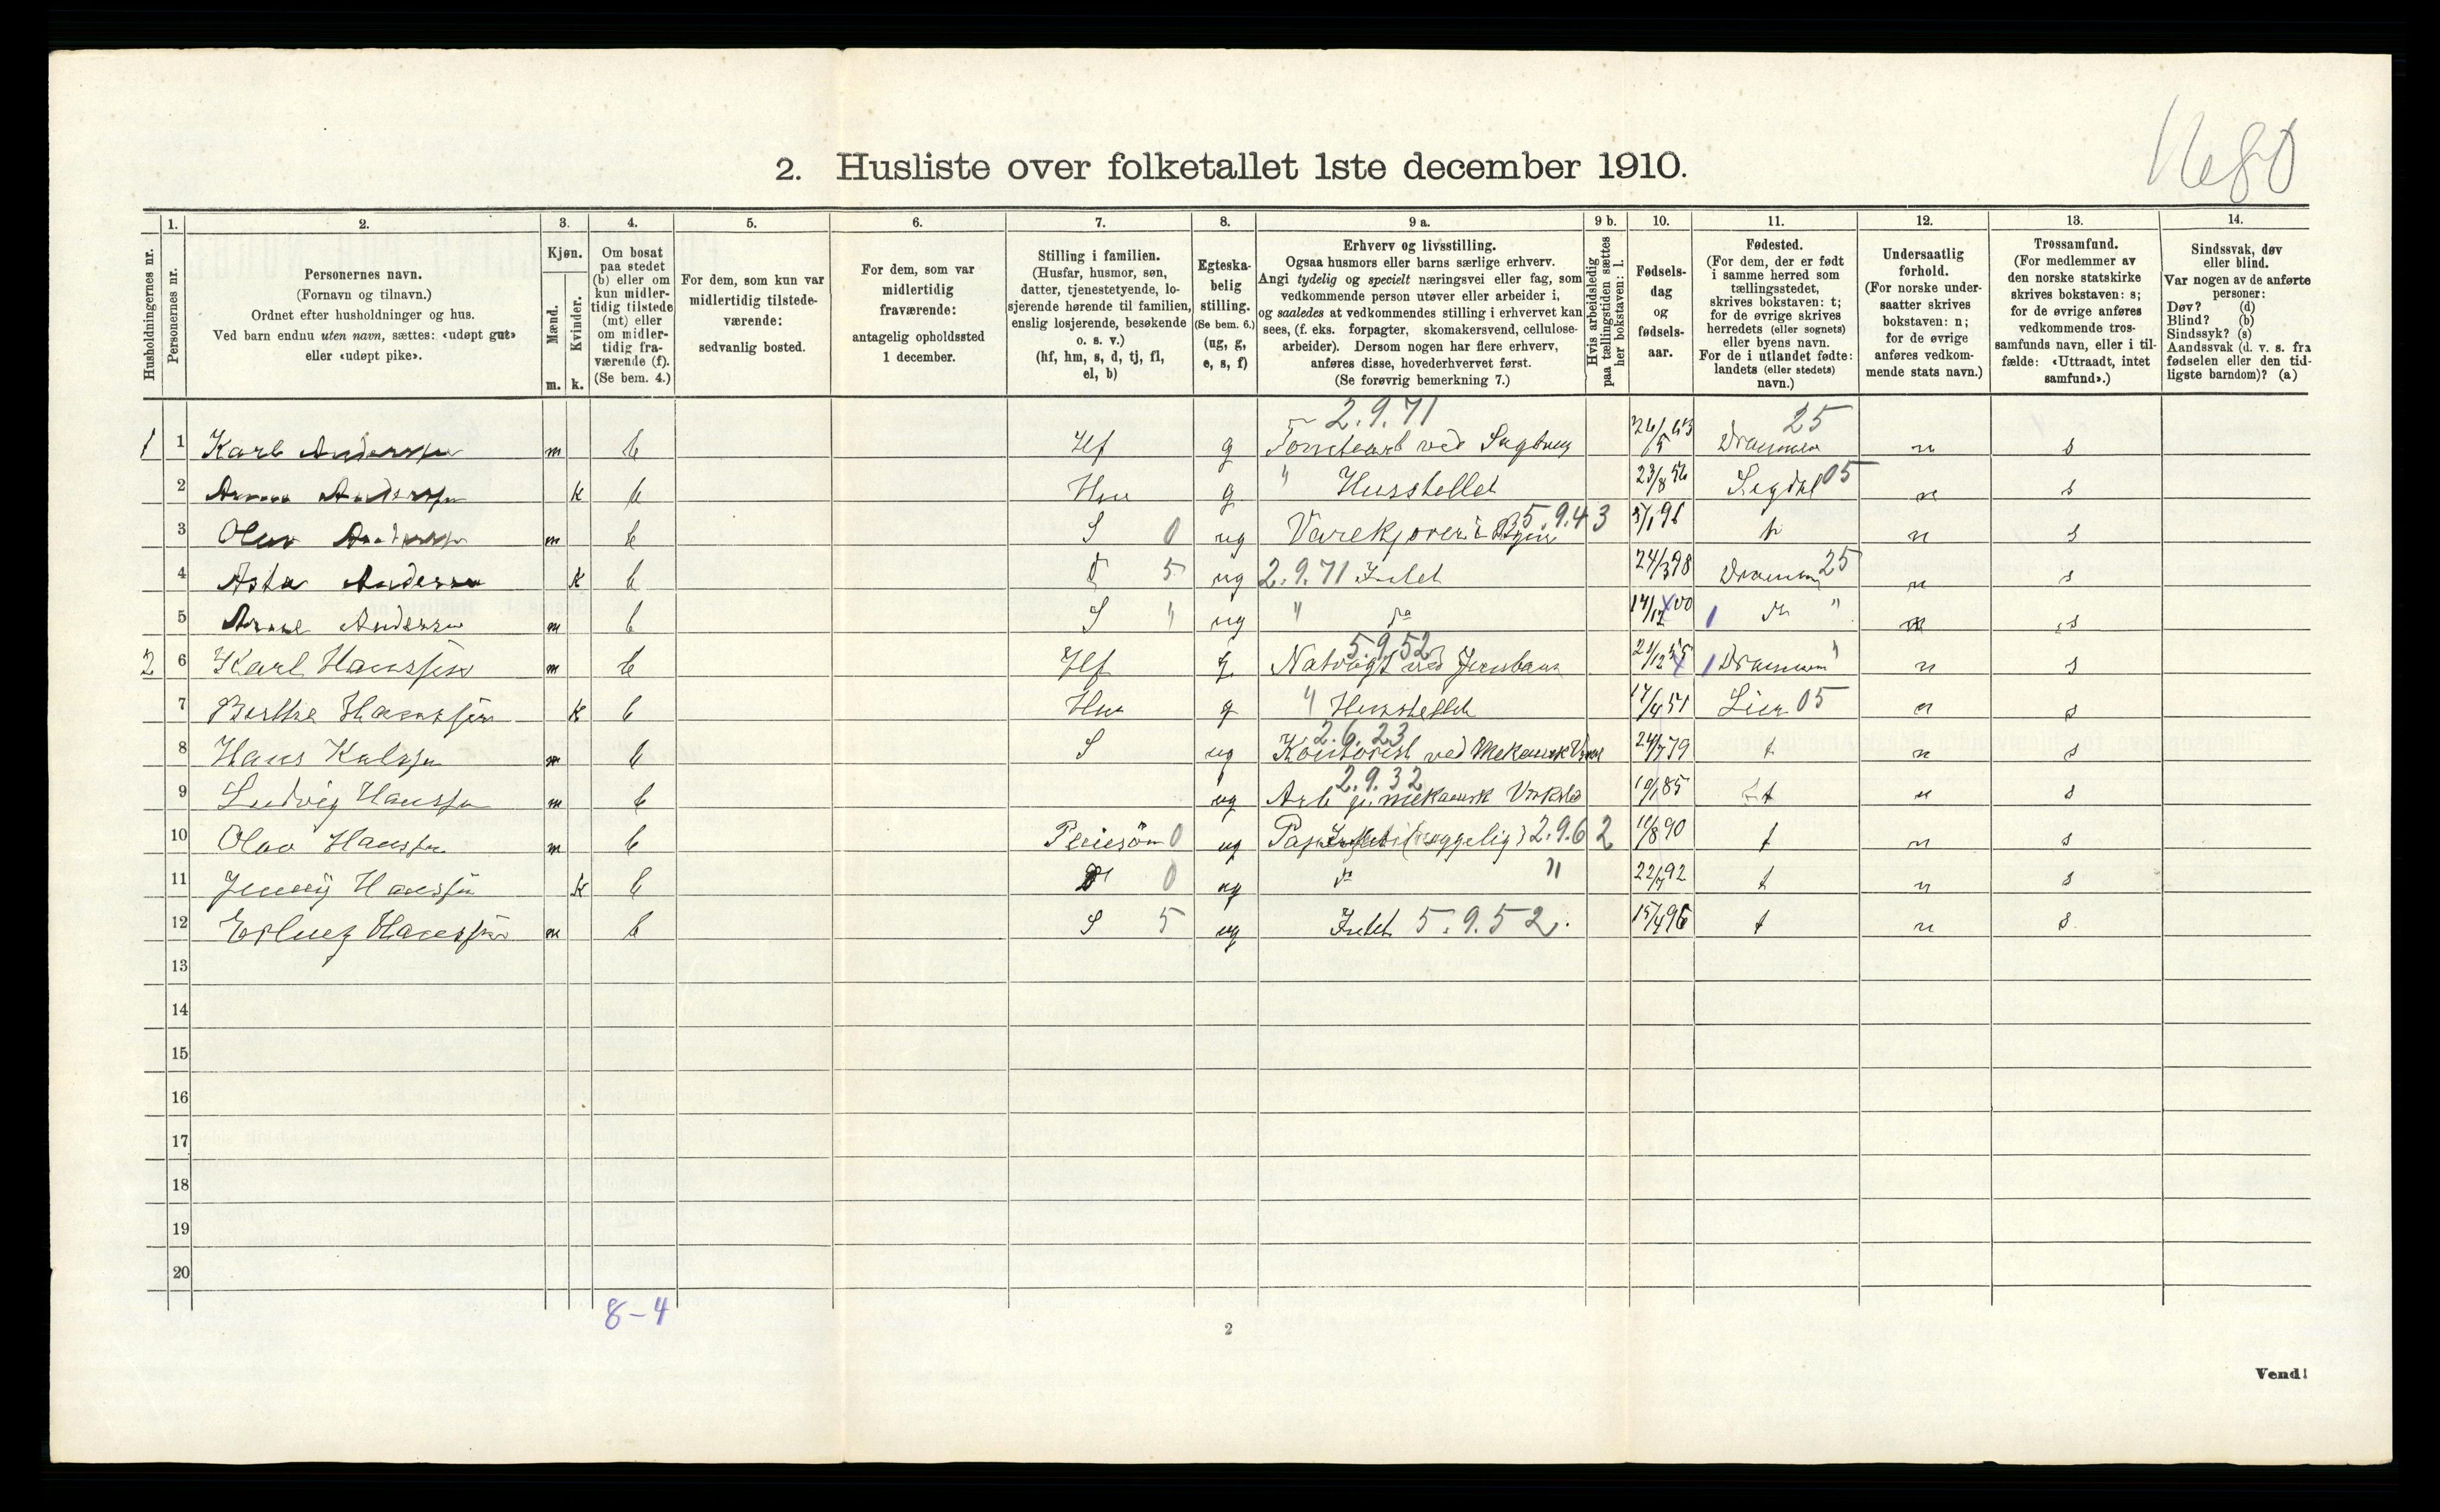 1680
2. Husliste over folketallet 1ste december 1910.
Husholdningernes nr.
1. Personernes nr.
2. Personernes navn.
(Fornavn og tilnavn.)
Ordnet efter husholdninger og hus.
Ved barn endnu uten navn, sættes: «udøpt gut»
eller «udøpt pike».
3. Kjøn.
Mænd. m.
Kvinder. k.
4. Om bosat
paa stedet
(b) eller om
kun midler-
tidig tilstede
(mt) eller
om midler-
tidig fra-
værende (f).
(Se bem. 4.)
5. For dem, som kun var
midlertidig tilstede-
værende:
sedvanlig bosted.
6. For dem, som var
midlertidig
fraværende:
antagelig opholdssted
1 december.
7. Stilling i familien.
(Husfar, husmor, søn,
datter, tjenestetyende, lo-
sjerende hørende til familien,
enslig losjerende, besøkende
o. s. v.)
(hf, hm, s, d, tj, fl,
el, b)
8. Egteska-
belig
stilling.
(Se bem. 6.)
(ug, g,
e, s, f)
9 a. Erhverv og livsstilling.
Ogsaa husmors eller barns særlige erhverv.
Angi tydelig og specielt næringsvei eller fag, som
vedkommende person utøver eller arbeider i,
og saaledes at vedkommendes stilling i erhvervet kan
sees, (f. eks. forpagter, skomakersvend, cellulose-
arbeider). Dersom nogen har flere erhverv,
anføres disse, hovederhvervet først.
(Se forøvrig bemerkning 7.)
9 b. Hvis arbeidsledig
paa tællingstiden sættes
her bokstaven: l.
10. Fødsels-
dag
og
fødsels-
aar.
11. Fødested.
(For dem, der er født
i samme herred som
tællingsstedet,
skrives bokstaven: t;
for de øvrige skrives
herredets (eller sognets)
eller byens navn.
For de i utlandet fødte:
landets (eller stedets)
navn.)
12. Undersaatlig
forhold.
(For norske under-
saatter skrives
bokstaven: n;
for de øvrige
anføres vedkom-
mende stats navn.)
13. Trossamfund.
(For medlemmer av
den norske statskirke
skrives bokstaven: s;
for de øvrige anføres
vedkommende tros-
samfunds navn, eller i til-
fælde: «Uttraadt, intet
samfund».)
14. Sindssvak, døv
eller blind.
Var nogen av de anførte
personer:
Døv? (d)
Blind? (b)
Sindssyk? (s)
Aandssvak (d. v. s. fra
fødselen eller den tid-
ligste barndom)? (a)
2.9.71 25
1 1 Karl Anderssen m b Hf g ved Drammen n s
2 Anna Anderssen k b Hm g " Husstellet 23/8 56 Sigdal 05 n s
3 Olav Anderssen m b S 0 ug Varekjører i Byen 5.9.43 t n s
4 Asta Andersen k b d 5 ug 2.9.71 Intet 24/3 98 Drammen 25 n s
5 Andersen m b S " ug " do 14/12 00 1 " n s
5.9.52
2 6 Karl Hanssen m b Hf g Natvagt ved Jernbane 21/12 55 1 Drammen " n s
7 Berthe Hanssen k b Hm g " Husstellet 17/4 51 Lier 05 n s
2.6.23
8 Hans Karlsen m b S ug Kontorist ved Mekanisk 24/7 79 t n s
2.9.32
9 Ludvig Hanssen m b ug Arb mekanisk Verksted 85 t n s
10 Olav Hanssen m b Pleiesøn 0 ug 2.9.62 90 t n s
11 Jenny Hanssen k b 0 ug do " 22/7 92 t n s
12 Erling Hanssen m b S 5 ug Intet 5.9.52. 15/4 96 t n s
13
14
15
16
17
18
19
20
8-4
2
Vend!